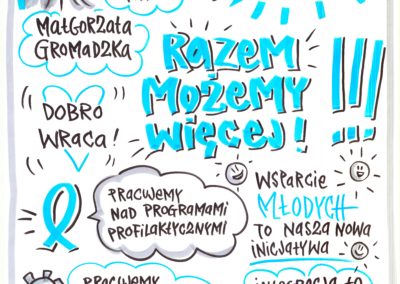 MAŁGORZATA
GROMADZKA
RAZEM
MOŻEMY
WIĘCEJ!
!!!
DOBRO
WRACA!
PRACUJEMY
NAD PROGRAMAMI
PROFILAKTYCZNYMI
WSPARCIE
MŁODYCH
TO NASZA NOWA
INICJATYWA
PRACUJEMY
INTEGRACJA TO